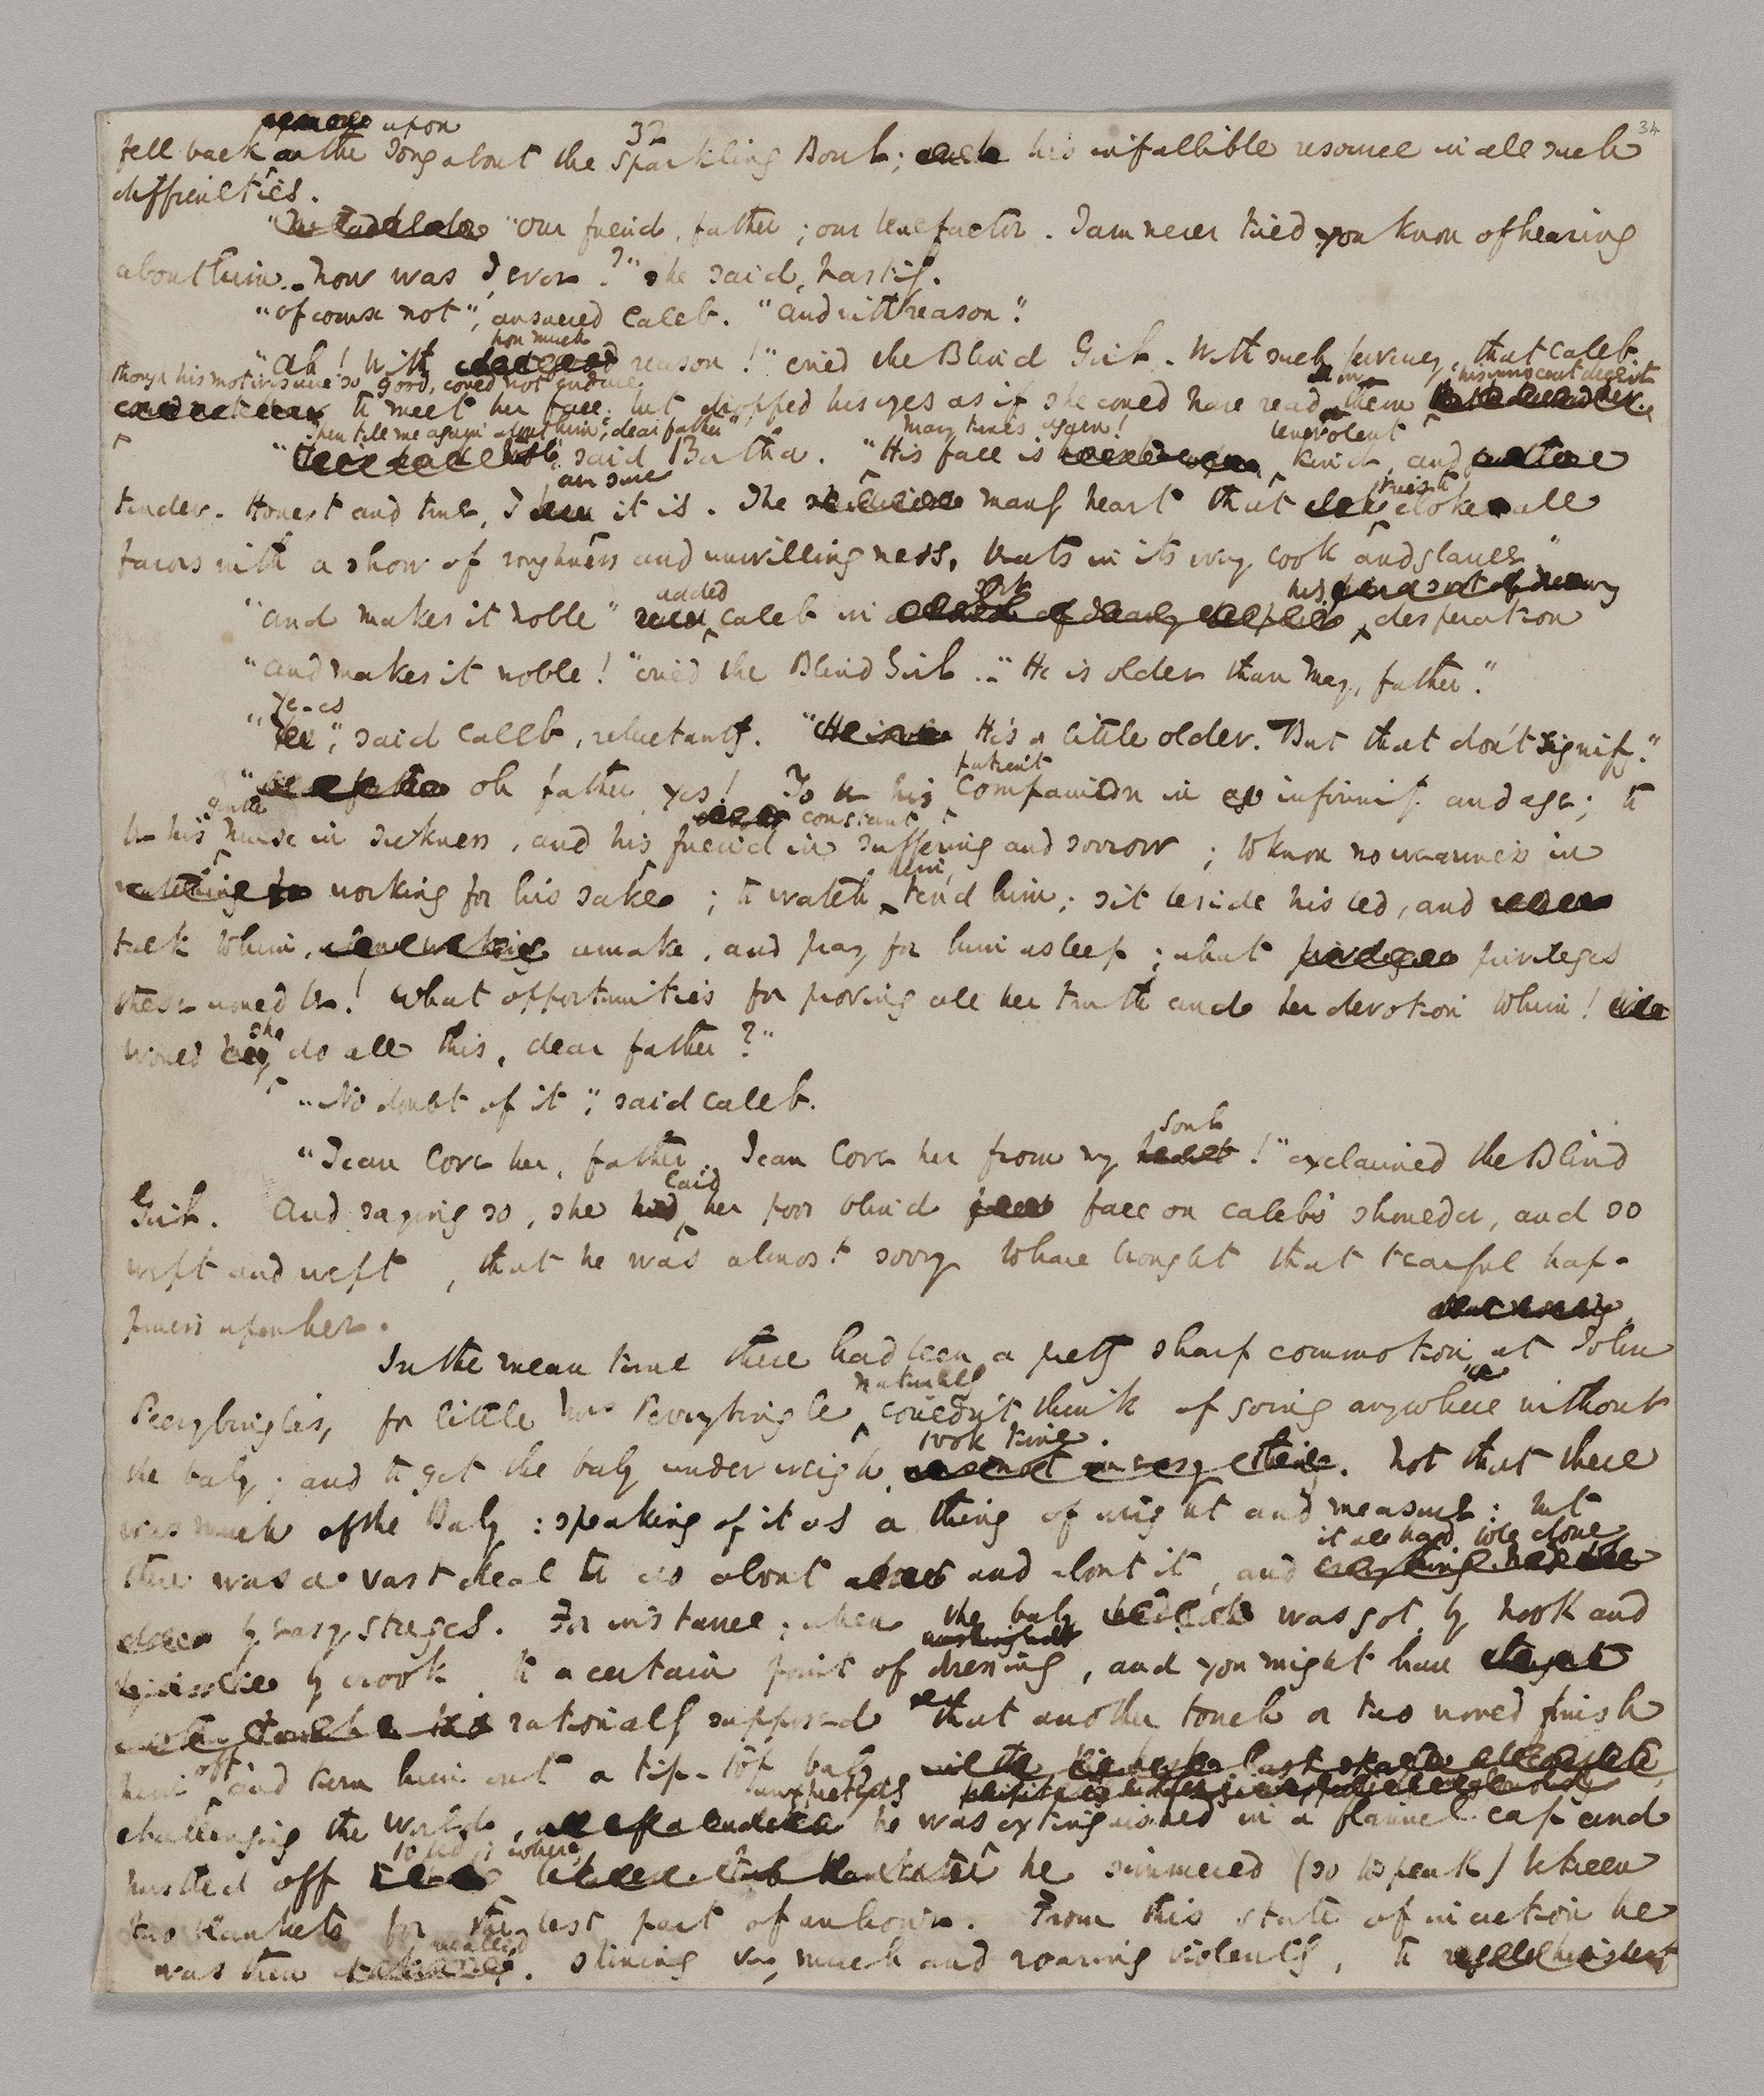 upon
32
34
fell back on the song about the Sparkling Bowl; his infallible resource in all such
difficulties.
"Our friend, father; our benefactor. I am never tired you know of hearing
about him. – Now was I, ever?" she said, hastily.
"Of course not", answered Caleb. "And with reason".
how much
"Ah! With reason!" cried the Blind Girl. With such fervency, that Caleb,
though his motives were so good, could not endure
in his innocent deceit
to meet her face; but dropped his eyes as if she could have read them
"Then tell me again about him, dear father",
many times again!
benevolent
said Bertha. "His face is kind, and
tender. Honest and true, I am sure it is. The manly heart that tries to cloke all
favors with a show of roughness and unwillingness, beats in its every look and glance"
added
"And makes it noble" Caleb in his desperation
"And makes it noble!" cried the Blind Girl. – "He is older than May, father".
Ye-es
"," said Caleb, reluctantly. "He's a little older. But that don't signify."
patient
"Oh father, yes! To be his Companion in infirmity and age; to
gentle
constant
be his nurse in sickness, and his friend in suffering and sorrow; to know no weariness in
him,
working for his sake; to watch tend him; sit beside his bed, and
talk to him, awake, and pray for him asleep; what privileges
these would be! What opportunities for proving all her truth and her devotion to him!
she
would do all this, dear father?"
"No doubt of it", said Caleb.
soul
"I can love her, father. I can love her from my !" exclaimed the Blind
laid
Girl. And saying so, she her poor blind face on Caleb's shoulder, and so
wept and wept, that he was almost sorry to have brought that tearful hap-
piness upon her.
In the mean time there had been a pretty sharp commotion at John
naturally
Peerybingle's, for little Mrs Peerybingle couldn't think of going anywhere without
took time.
the baby; and to get the baby under weigh, . Not that there
was much of the Baby: speaking of it as a thing of weight and measure: but
it all had to be done
there was a vast deal to do about and about it, and
by easy stages. For instance; when the baby was got, by hook and
by crook, to a certain point of dressing, and you might have
rationally supposed that another touch or two would finish
him off and turn him out a tip-top baby
unexpectedly
challenging the world, he was extinguished in a flannel cap and
to bed; where
hustled off he simmered (so to speak) between
two blankets for the best part of an hour. From this state of inaction he
recalled
was then , shining very much and roaring violently, to